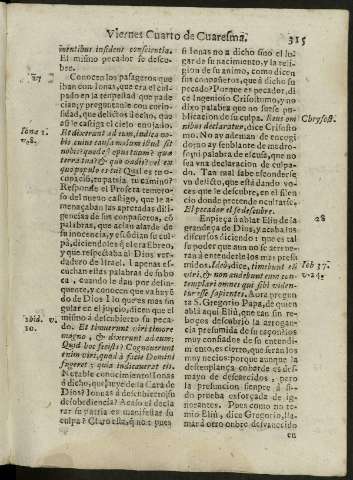 Viernes Cuarto de Cuaresma. 315
mentibus insident conscientia.
El mismo pecador se descu-
bre.
27
Conocen los pasageros que
iban con Ionas, que era el cul-
pado en la tempestad que pa-
decian; y preguntanle con
sidad, que delitos à echo, que
assi le castiga el cielo enojado.
Ionæ 1.
v. 8.
Et dixerunt ad eum, indica no-
bis cuius causa malum istud sit
nobis? quod est opus tuum? quæ
terra tua? & quò vadis? vel ex
quo populo es tu? Qual es tu o-
cupacio, tu patria, tu camino?
Responde el Profeta temero-
so del nuevo castigo, que le a-
menaçaban las apretadas dili-
gencias de sus conpañeros, cõ
palabras, que acian alarde de
su inocencia, y escõdian su cul-
pa, diciendoles q̃ el era Ebreo,
y que respetaba al Dios ver-
dadero de Israel. I apenas es-
cuchan estas palabras de su bo
ca, cuando le dan por delin-
quente, y conocen que va huyẽ
do de Dios. I lo que es mas sin
gular en el juycio, sienten que el
mismo à descubierto su peca-
do.
ibid. v.
10.
Et timuerunt viri timore
magno, & dixerunt ad eum:
Quid hoc fecisti? Cognouerunt
enim viri, quod à facie Domini
fugeret: quia indicauerat eis.
Notable conocimiento! Ionas
à dicho, que huye de la Cara de
Dios? Ionas à descubierto su
desobediencia? Acaso el decla
rar su patria es manifestar su
culpa? Claro està, q̃ no: pues
si Ionas no à dicho sino el lu-
gar de su nacimiento, y la reli
gion de su animo, como dicen
sus conpañeros, que à dicho su
pecado? Porque es pecador, di
ce Ingenio Crisostomo, y no
pudo darse respuesta, sino fuese pu-
blicacion de su culpa.
Chrysost.
Reus om
nibus declaratur, dice Crisosto
mo. No ay ademan de encogi
do, no ay senblante de modes-
tia, ni palabra de escusa, que no
sea vna publicacion de culpado.
Tan mal sabe esconderse
vn delito, que està dando vo-
ces que le descubre, en el silen
cio donde pretende ocultarse.
El pecador él se descubre.
28
Enpieça à ablar Eliù de la
grandeça de Dios, y acaba los
discursos diciendo: que es tal
su poder que aun no se atreve-
ran à entenderle los mas presu
midos.
Iob 37.
v. 24.
Ideò, dice, timebunt eũ
viri, & non audebunt eum con-
templari omnes qui sibi viden-
tur esse sapientes. Aora pregun
ta S. Gregorio Papa, de quien
abla aqui Eliù, que tan sin re-
boços descubriò la arrogan-
cia presumida de su raçon? los
muy confiados de su entendi-
miẽto, es cierto, que seràn los
muy necios: porque aunque la
destenplança cobarde es des-
mayo de desacordos; pero
la presuncion siempre à si-
do prueba esforçada de ig-
norantes. Pues como no te-
mio Eliù, dice Gregorio, lla-
mar à otro onbre desvanecido
en